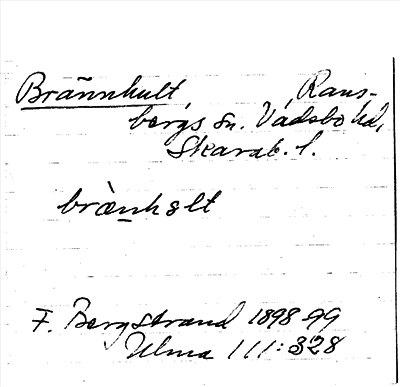 Brännhult, Rans-
bergs sn. Vadsbo hd,
Skarab. l.
bræ̀nhult
F. Bergstrand 1898-99
Ulma 111:328